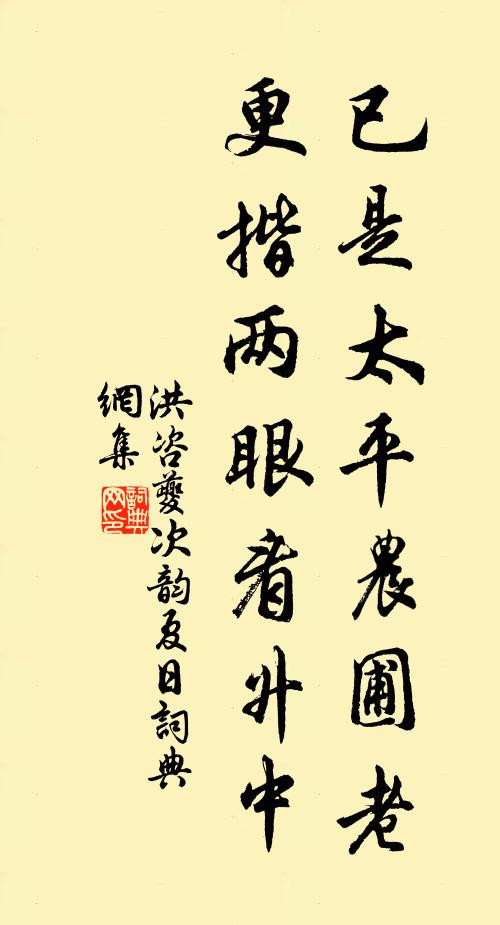 已是太平農圃老
更揩兩眼看升中
洪咨夔次韵夏日詞典
網集
詞典
网印